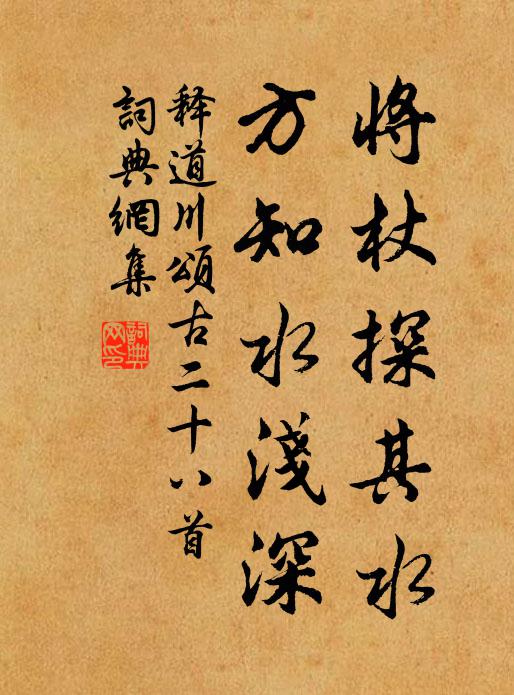 将杖探其水
方知水淺深
释道川頌古二十八首
詞典網集
詞典网印